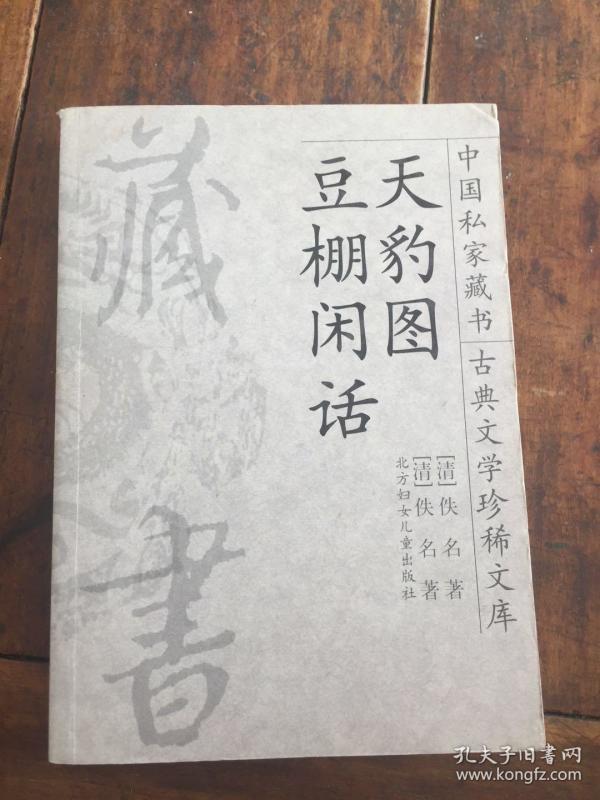 中国私家藏书
古典文学珍稀文库
天豹图
豆棚闲话
[清]佚名著
[清]佚名著
北方妇女儿童出版社
藏書
孔夫子旧書网
www.kongfz.com